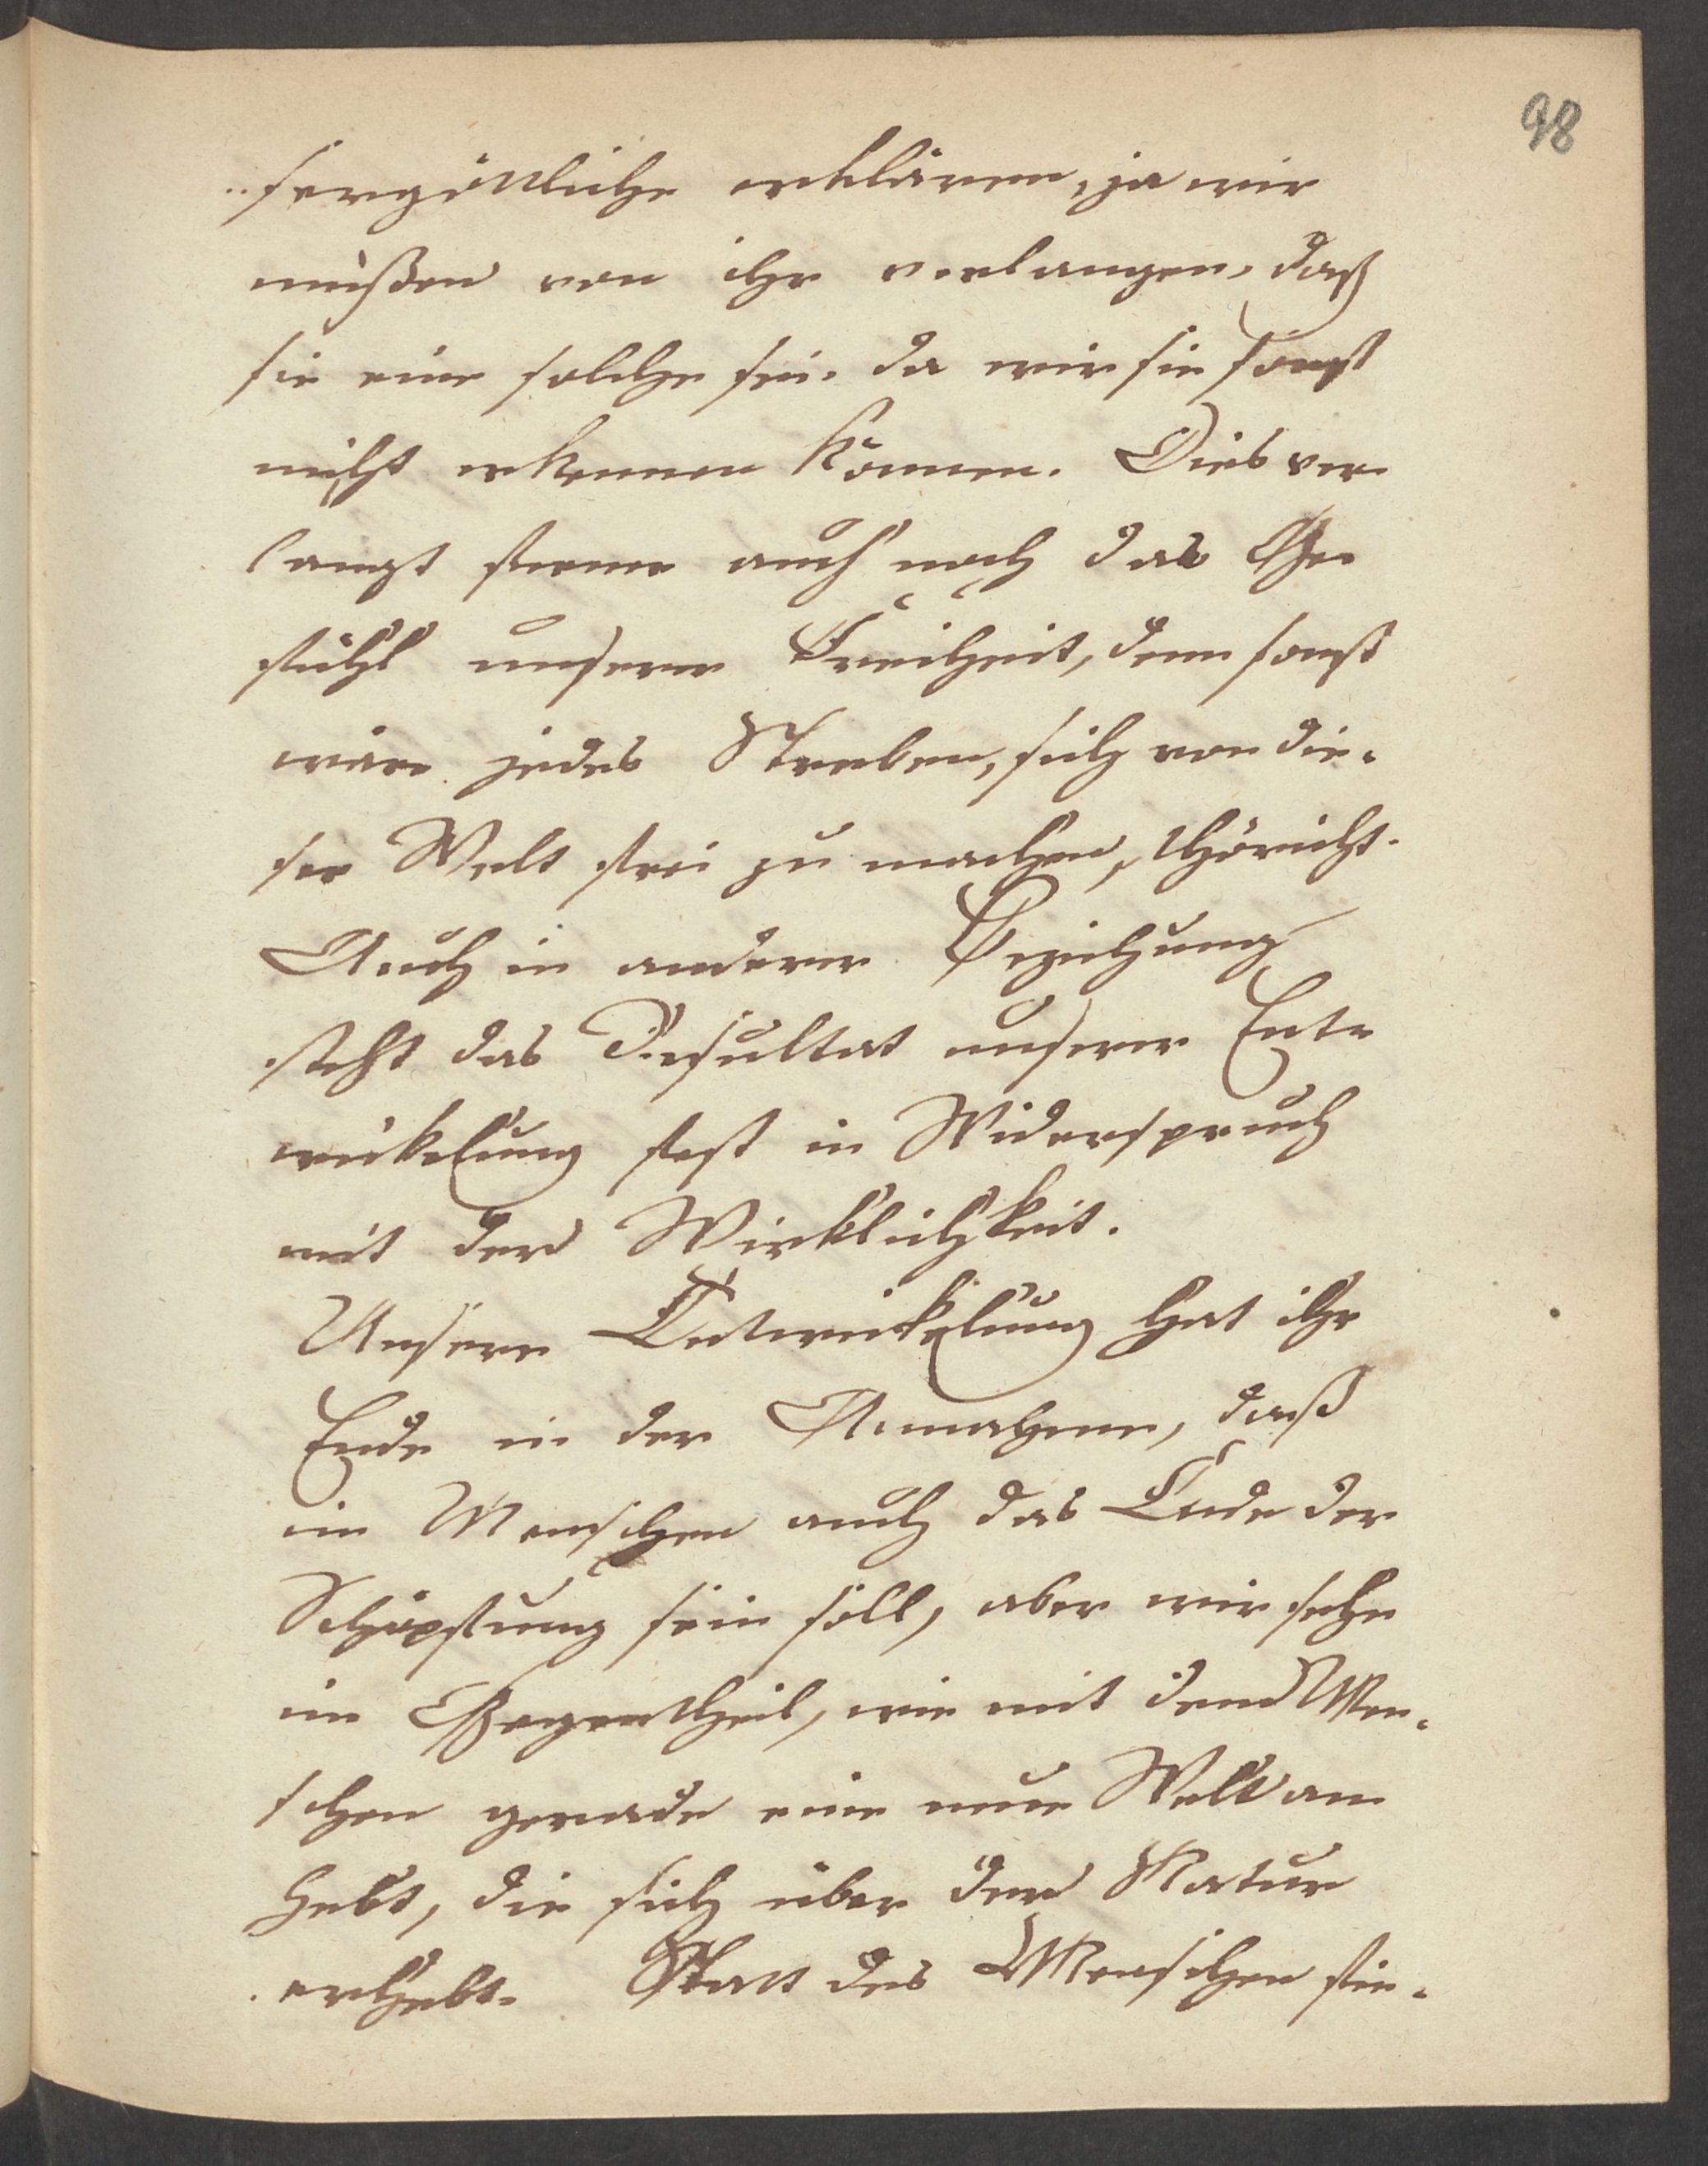 98
sergöttliche erklären, ja wir
müßen von ihr verlangen, daß
sie eine solche sei, da wir sie sonst
nicht erkennen können. Dies ver-
langt ferner auch noch das Ge-
fühl unserer Freiheit, denn sonst
wäre jedes Streben, sich von die-
ser Welt frei zu machen, thöricht.
Auch in anderer Beziehung
steht das Resultat unserer Ent-
wickelung fest in Widerspruch
mit der Wirklichkeit.
Unsere Entwickelung hat ihr
Ende in der Annahme, daß
im Menschen auch das Ende der
Schöpfung sein soll, aber wir sehe
im Gegentheil, wie mit dem Men-
schen gerade eine neue Welt an-
hebt, die sich über der Natur
erhebt. Statt des Menschen fin-